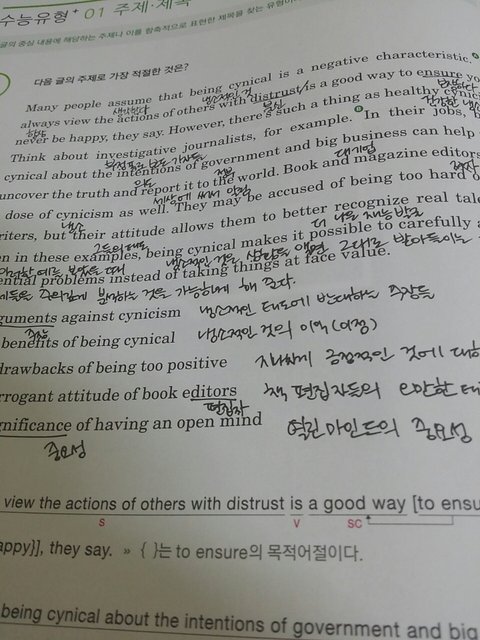 수능유형+ 01 주제·제목
글의 중심 내용에 해당하는 주제나 이를 함축적으로 표현한 제목을 찾는 유형이
다음 글의 주제로 가장 적절한 것은?
Many people assume that being cynical is a negative characteristic.
생각한다 냉소적인 것
always view the actions of others with distrust is a good way to ensure
항상 불신 보장하다
never be happy, they say. However, there's such a thing as healthy cynic
건강한 냉소
Think about investigative journalists, for example. In their jobs, b
cynical about the intentions of government and big business can help
의도 대기업
uncover the truth and report it to the world. Book and magazine editors
편집자
dose of cynicism as well. They may be accused of being too hard o
냉소
riters, but their attitude allows them to better recognize real tale
그들의 태도 더 나은 재능
n in these examples, being cynical makes it possible to carefully a
ential problems instead of taking things at face value.
것을 가능하게 해 준다.
guments against cynicism 냉소적인 태도에 반대하는 주장들
주장
benefits of being cynical 냉소적인 것의 이익 (이점)
drawbacks of being too positive 지나치게 긍정적인 것에 대하
rrogant attitude of book editors 책 편집자들의 오만한 태
편집자
gnificance of having an open mind 열린 마인드의 중요성
중요성
view the actions of others with distrust is a good way [to ensu
S V SC
appy}], they say. » { }는 to ensure의 목적어절이다.
being cynical about the intentions of government and big